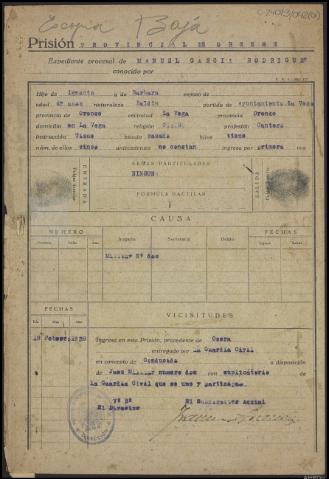 Escopia Baja
Prisión PROVINCIAL DE ORENSE
Expediente procesal de MANUEL GARCIA RODRIGUE
conocido por
Hijo de Ignacio y de Barbara esposo de
edad años naturaleza partido de ayuntamiento La Vega
provincia de Orense vecindad La Vega provincia Orense
domicilio en La Vega religión profesión Cantero
instrucción Tiene estado casado hijos tiene
núm. de ellos cinco antecedentes no constan ingresa por primera vez
SEÑAS PARTICULARES
NINGUNA
FORMULA DACTILAR
ENTRADA
SALIDA
CAUSA
NUMERO
FECHAS
Juzgado
Secretaría
Delito
Militar Nº dos
FECHAS
VICISITUDES
Día Mes Año
Ingresa en este Prisión, procedente de
entregado por La Guardia Civil
en concepto de Conducido a disposición
de Juez Militar numero dos con suplicatorio de
La Guardia Civil que se une y participa.
Vº Bº
El Director